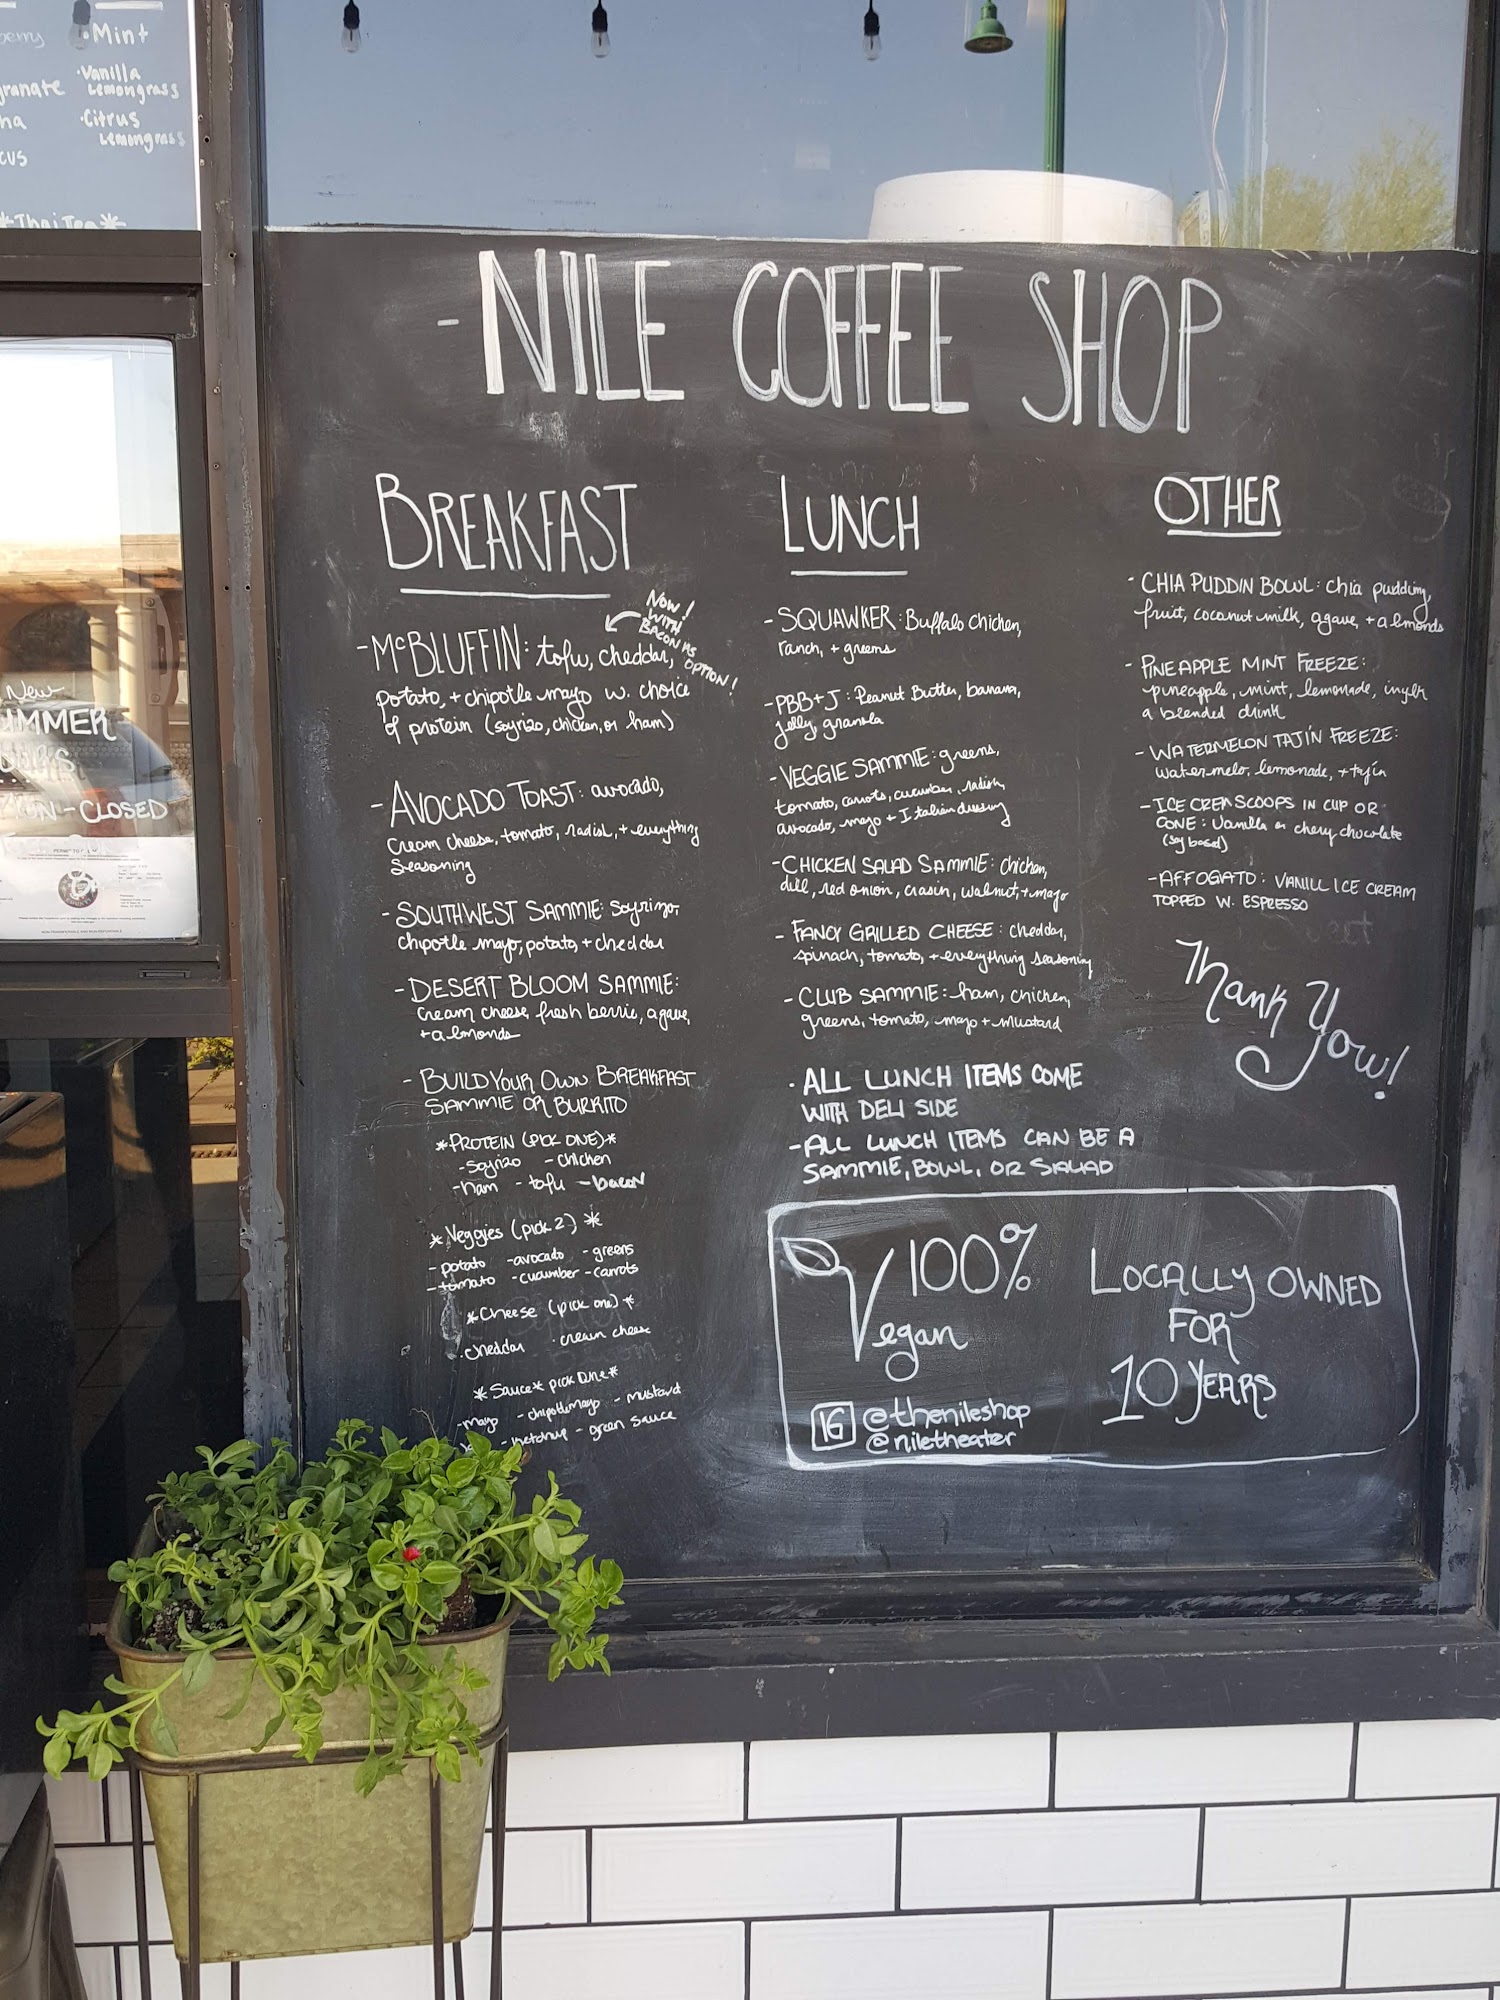 Mint
Vanilla
Lemongrass
Citrus
Lemongrass
*Thai Tea*
New
CLOSED
- NILE COFFEE SHOP
BREAKFAST
NOW!
WITH
BACON AS
OPTION!
- McBLUFFIN: tofu, cheddar,
potato, + chipotle mayo w. choice
of protein (soyrizo, chicken, or ham)
- AVOCADO TOAST: avocado,
cream cheese, tomato, radish, + everything
seasoning
- SOUTHWEST SAMMIE: Soyrizo,
chipotle mayo, potato, + cheddar
- DESERT BLOOM SAMMIE:
cream cheese, fresh berrie, agave,
+ almonds
- BUILD YOUR OWN BREAKFAST
SAMMIE OR BURRITO
*PROTEIN (PICK ONE)*
- soyrizo - chicken
- ham - tofu - bacon
*Veggies (pick 2)*
- potato - avocado - greens
- tomato - cucumber - carrots
*Cheese (pick one)*
. cheddar . cream cheese
*Sauce* pick one*
- mayo - chipotle mayo - mustard
- ketchup - green sauce
LUNCH
- SQUAWKER: Buffalo chicken,
ranch, + greens
- PBB+J: Peanut Butter, banana,
jelly, granola
- VEGGIE SAMMIE: greens,
tomato, carrots, cucumber, radish,
avocado, mayo + Italian dressing
- CHICKEN SALAD SAMMIE: chicken,
dill, red onion, craisin, walnut, + mayo
- FANCY GRILLED CHEESE: cheddar,
spinach, tomato, + everything seasoning
- CLUB SAMMIE: ham, chicken,
greens, tomato, mayo + mustard
. ALL LUNCH ITEMS COME
WITH DELI SIDE
- ALL LUNCH ITEMS CAN BE A
SAMMIE, BOWL, OR SALAD
OTHER
- CHIA PUDDIN BOWL: chia pudding,
fruit, coconut milk, agave, + almonds
- PINEAPPLE MINT FREEZE:
pineapple, mint, lemonade, in
a blended drink
- WATERMELON TAJÍN FREEZE:
watermelo, lemonade, + tajín
- ICE CREM SCOOPS IN CUP OR
CONE: Vanilla or cherry chocolate
(soy based)
- AFFOGATO: VANILL ICE CREAM
TOPPED W. ESPRESSO
Thank You!
100%
Vegan
LOCALLY OWNED
FOR
10 YEARS
IG @thenileshop
@niletheater